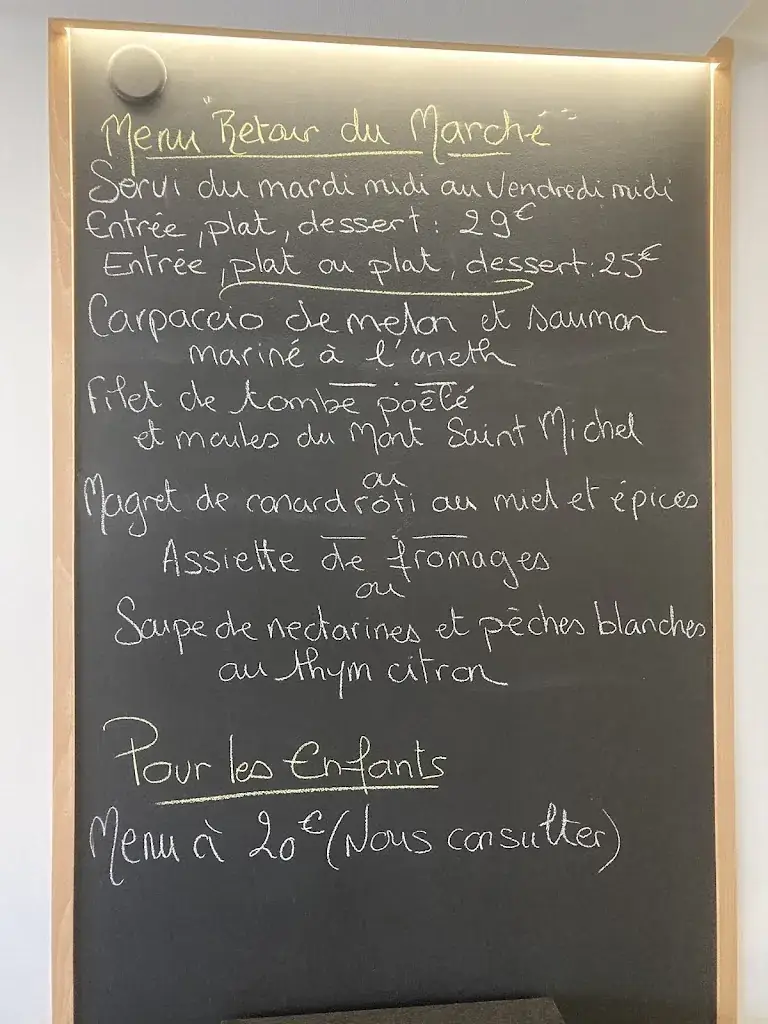 Menu "Retour du Marché"
Servi du mardi midi au Vendredi midi
Entrée, plat, dessert: 29€
Entrée, plat ou plat, dessert: 25€
Carpaccio de melon et saumon
mariné à l'aneth
Filet de tombe poêlé
et moules du Mont Saint Michel
ou
Magret de canard rôti au miel et épices
Assiette de fromages
ou
Soupe de nectarines et pêches blanches
au thym citron
Pour les Enfants
Menu à 20€ (Nous consulter)